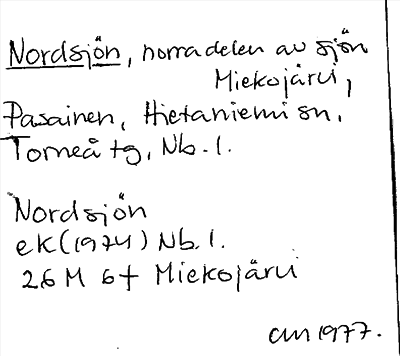 Nordsjön, norra delen av sjön
Miekojärvi,
Pasainen, Hietaniemi sn,
Torneå tg, Nb. l.
Nordsjön
ek (1974) Nb. l.
26 M 6f Miekojärvi
am 1977.